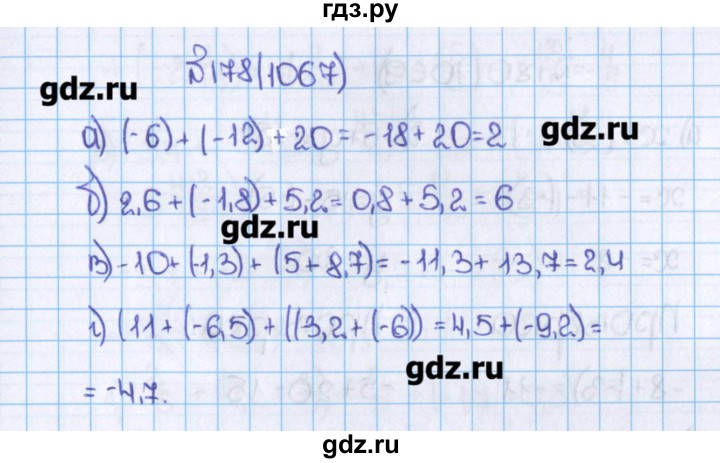 гдз.ру
№178(1067)
gdz.ru
а) (-6) + (-12) + 20 = -18 + 20 = 2
gdz.ru
б) 2,6 + (-1,8) + 5,2 = 0,8 + 5,2 = 6
gdz.ru
в) -10 + (-1,3) + (5 + 8,7) = -11,3 + 13,7 = 2,4
г) (11 + (-6,5) + ((-3,2 + (-6)) = 4,5 + (-9,2) =
gdz.ru
= -4,7.
gdz.ru